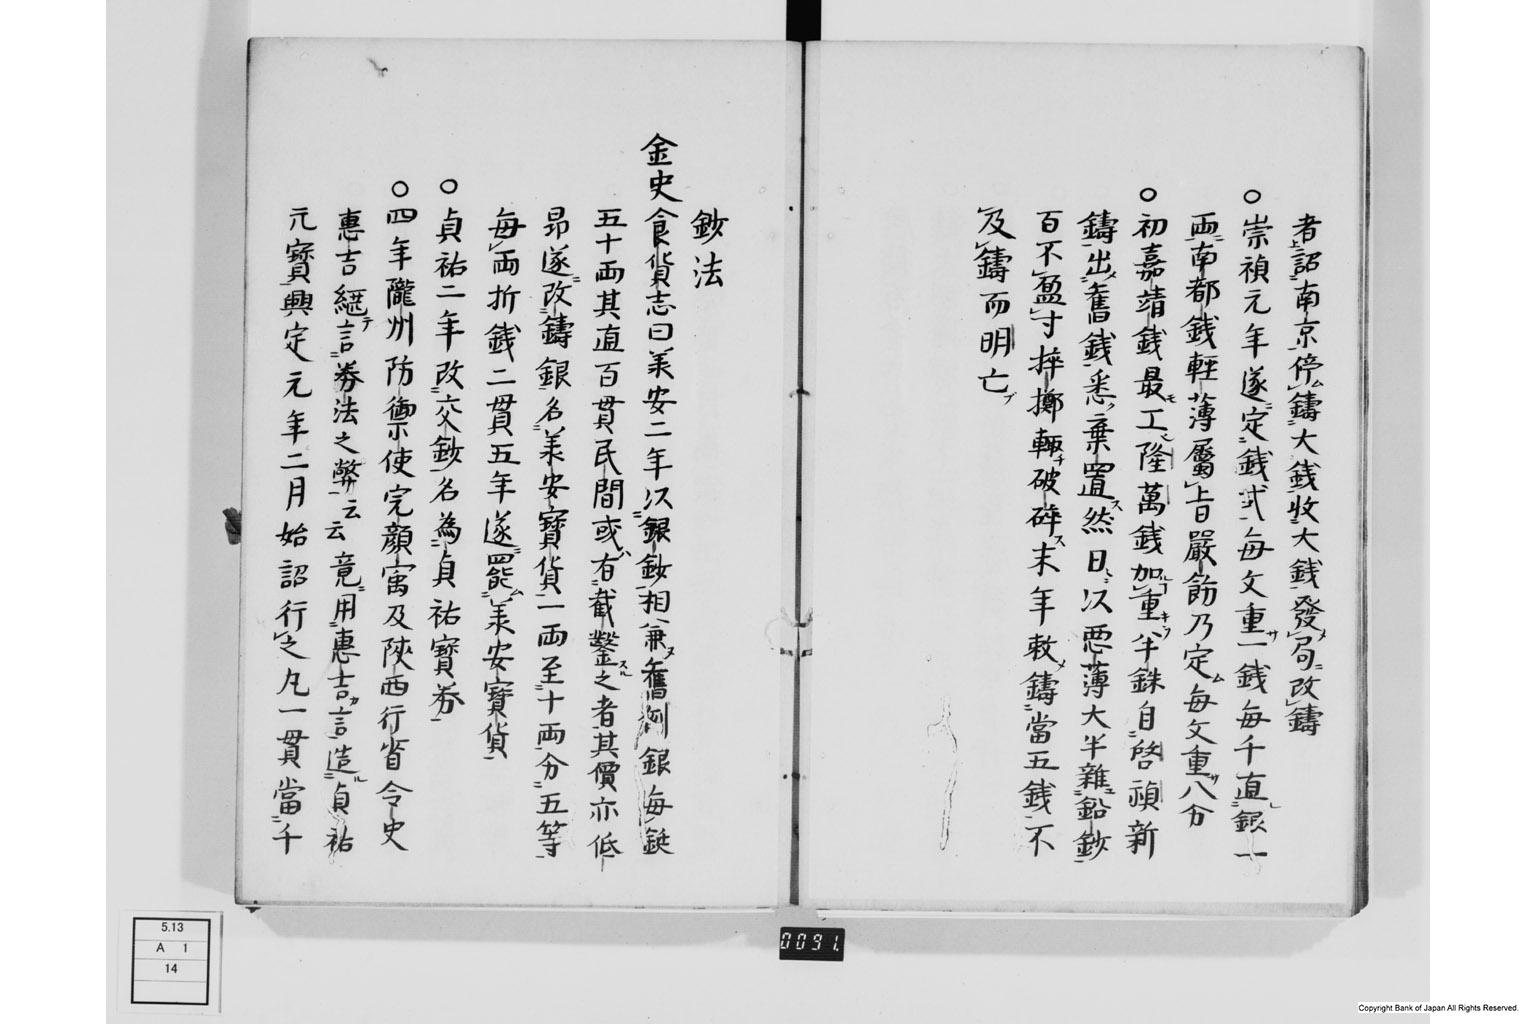 者詔南京停鑄大錢收大錢發局改鑄
○崇禎元年遂定錢式每文重一錢每千直銀一
兩南都錢輕薄屬旨嚴飭乃定每文重八分
○初嘉靖錢最工隆萬錢加重半銖自啓禎新
鑄出舊錢悉棄置然日以惡薄大半雜鉛鈔
百不盈寸捽擲輒破碎末年敕鑄當五錢不
及鑄而明亡
鈔法
金史食貨志曰美安二年以銀鈔相兼舊例銀每鋌
五十兩其直百貫民間或有截鑿之者其價亦低
昂遂改鑄銀名美安寶貨一兩至十兩分五等
每兩折錢二貫五年遂罷美安寶貨
○貞祐二年改交鈔名為貞祐寶券
○四年隴州防禦使完顏寓及陝西行省令史
惠吉繼言券法之弊云云竟用惠吉言造貞祐
元寶興定元年二月始詔行之凡一貫當千
5.13
A 1
14
0091.
Copyright Bank of Japan All Rights Reserved.